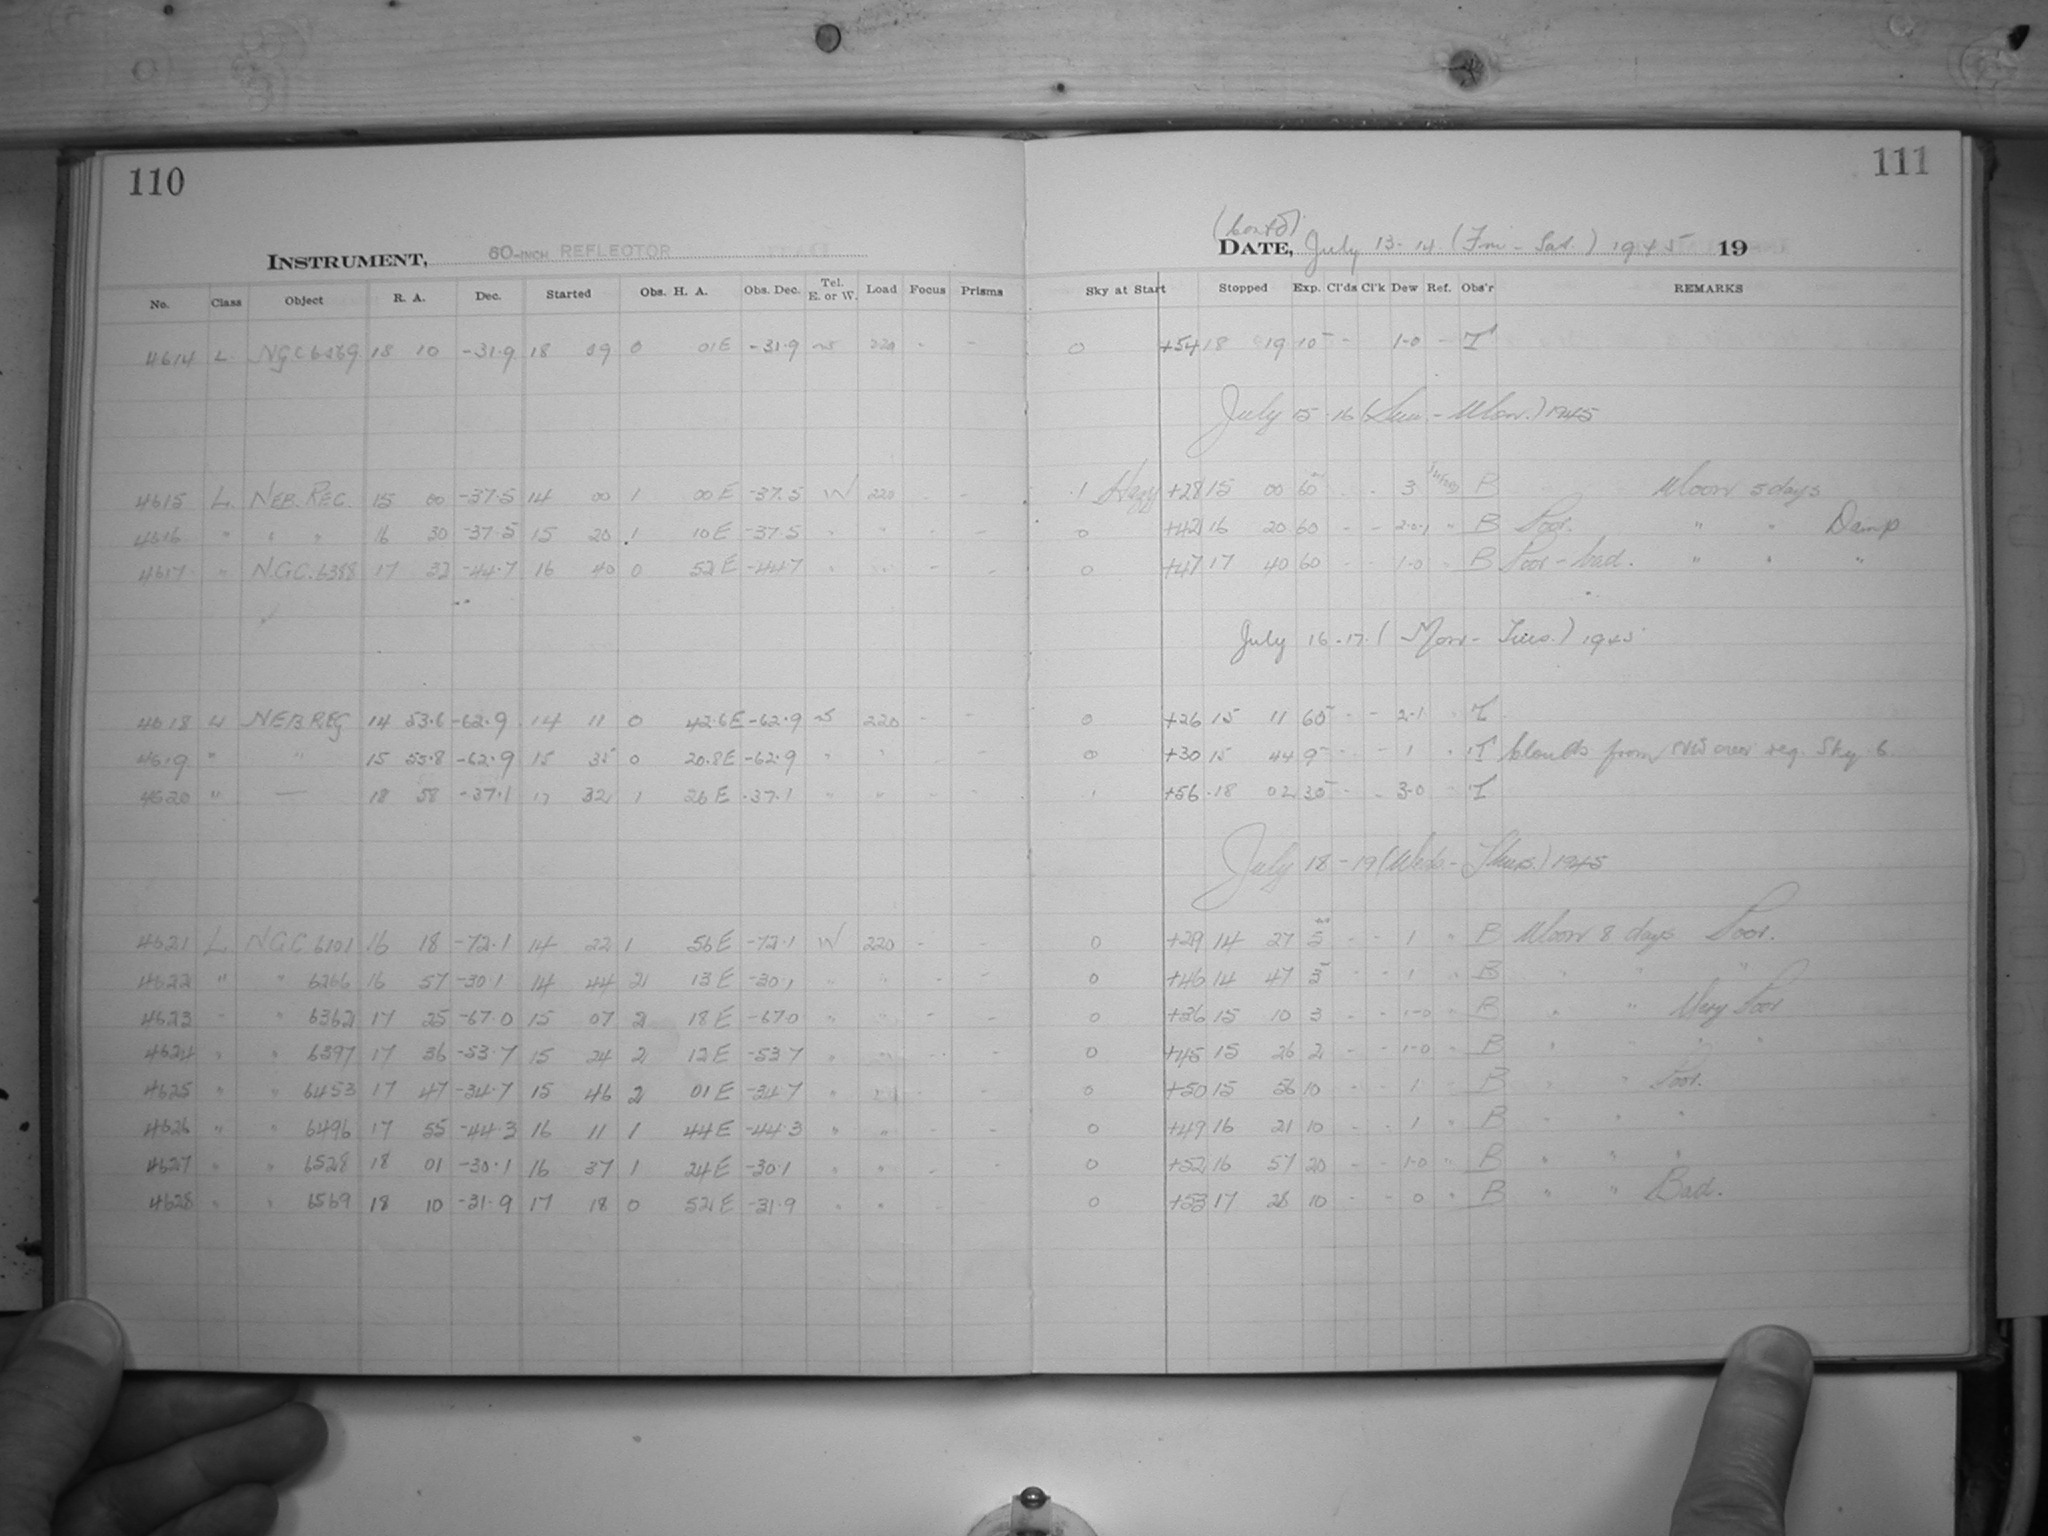 110
111
(Contd)
INSTRUMENT, 60-INCH REFLECTOR DATE, July 13-14 (Fri - Sat.) 1945 19
No. Class Object R. A. Dec. Started Obs. H. A. Obs. Dec. Tel. E. or W. Load Focus Prisms Sky at Start Stopped Exp. Cl'ds Cl'k Dew Ref. Obs'r REMARKS
4614 L NGC6569 18 10 -31.9 18 09 0 01E -31.9 W 220 - - 0 +54 18 19 10 - 1-0 - T
July 15-16 (Sun. - Mon.) 1945
4615 L NEB. REG. 15 00 -37.5 14 00 1 00E -37.5 W 220 - - .1 Hazy +28 15 00 60 - - 3 B Moon 5 days
4616 " " " 16 30 -37.5 15 20 1 10E -37.5 " " - - 0 +42 16 20 60 - - 2-0.1 " B Poor. " " Damp
4617 " N.G.C. 6388 17 32 -44.7 16 40 0 52E -44.7 " " - - 0 +47 17 40 60 - - 1-0 " B Poor - bad. " " "
July 16-17 (Mon - Tues.) 1945
4618 L NEB REG 14 53.6 -62.9 14 11 0 42.6E -62.9 W 220 - - 0 +26 15 11 60 - - 2-1 " T
4619 " " 15 55.8 -62.9 15 35 0 20.8E -62.9 " " - - 0 +30 15 44 9 - - 1 " T Clouds from over reg. Sky 6
4620 " — 18 58 -37.1 17 32 1 26E -37.1 " " - - 1 +56 18 02 30 - - 3-0 - T
July 18-19 (Wed. - Thurs.) 1945
4621 L NGC 6101 16 18 -72.1 14 22 1 56E -72.1 W 220 - - 0 +29 14 27 5 - - 1 " B Moon 8 days Poor.
4622 " " 6266 16 57 -30.1 14 44 2 13E -30.1 " " - - 0 +46 14 47 3 - - 1 " B " " "
4623 " " 6362 17 25 -67.0 15 07 2 18E -67.0 " " - - 0 +26 15 10 3 - - 1-0 " B " " Very Poor
4624 " " 6397 17 36 -53.7 15 24 2 12E -53.7 " " - - 0 +45 15 26 2 - - 1-0 " B " " " "
4625 " " 6453 17 47 -34.7 15 46 2 01E -34.7 " " - - 0 +50 15 56 10 - - 1 " B " " Poor.
4626 " " 6496 17 55 -44.3 16 11 1 44E -44.3 " " - - 0 +49 16 21 10 - - 1 " B " " "
4627 " " 6528 18 01 -30.1 16 37 1 24E -30.1 " " - - 0 +52 16 57 20 - - 1-0 " B " " "
4628 " " 6569 18 10 -31.9 17 18 0 52E -31.9 " " - 0 +53 17 28 10 - - 0 " B " " Bad.